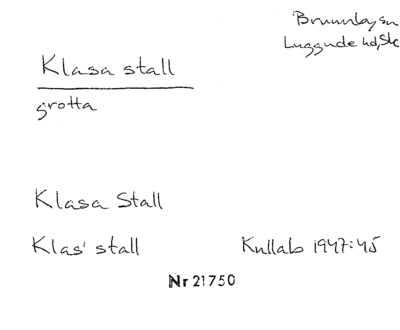 Brunnby sn
Luggude hd, Sk
Klasa stall
grotta
Klasa Stall
Klas' stall Kullab 1947:45
Nr 21750